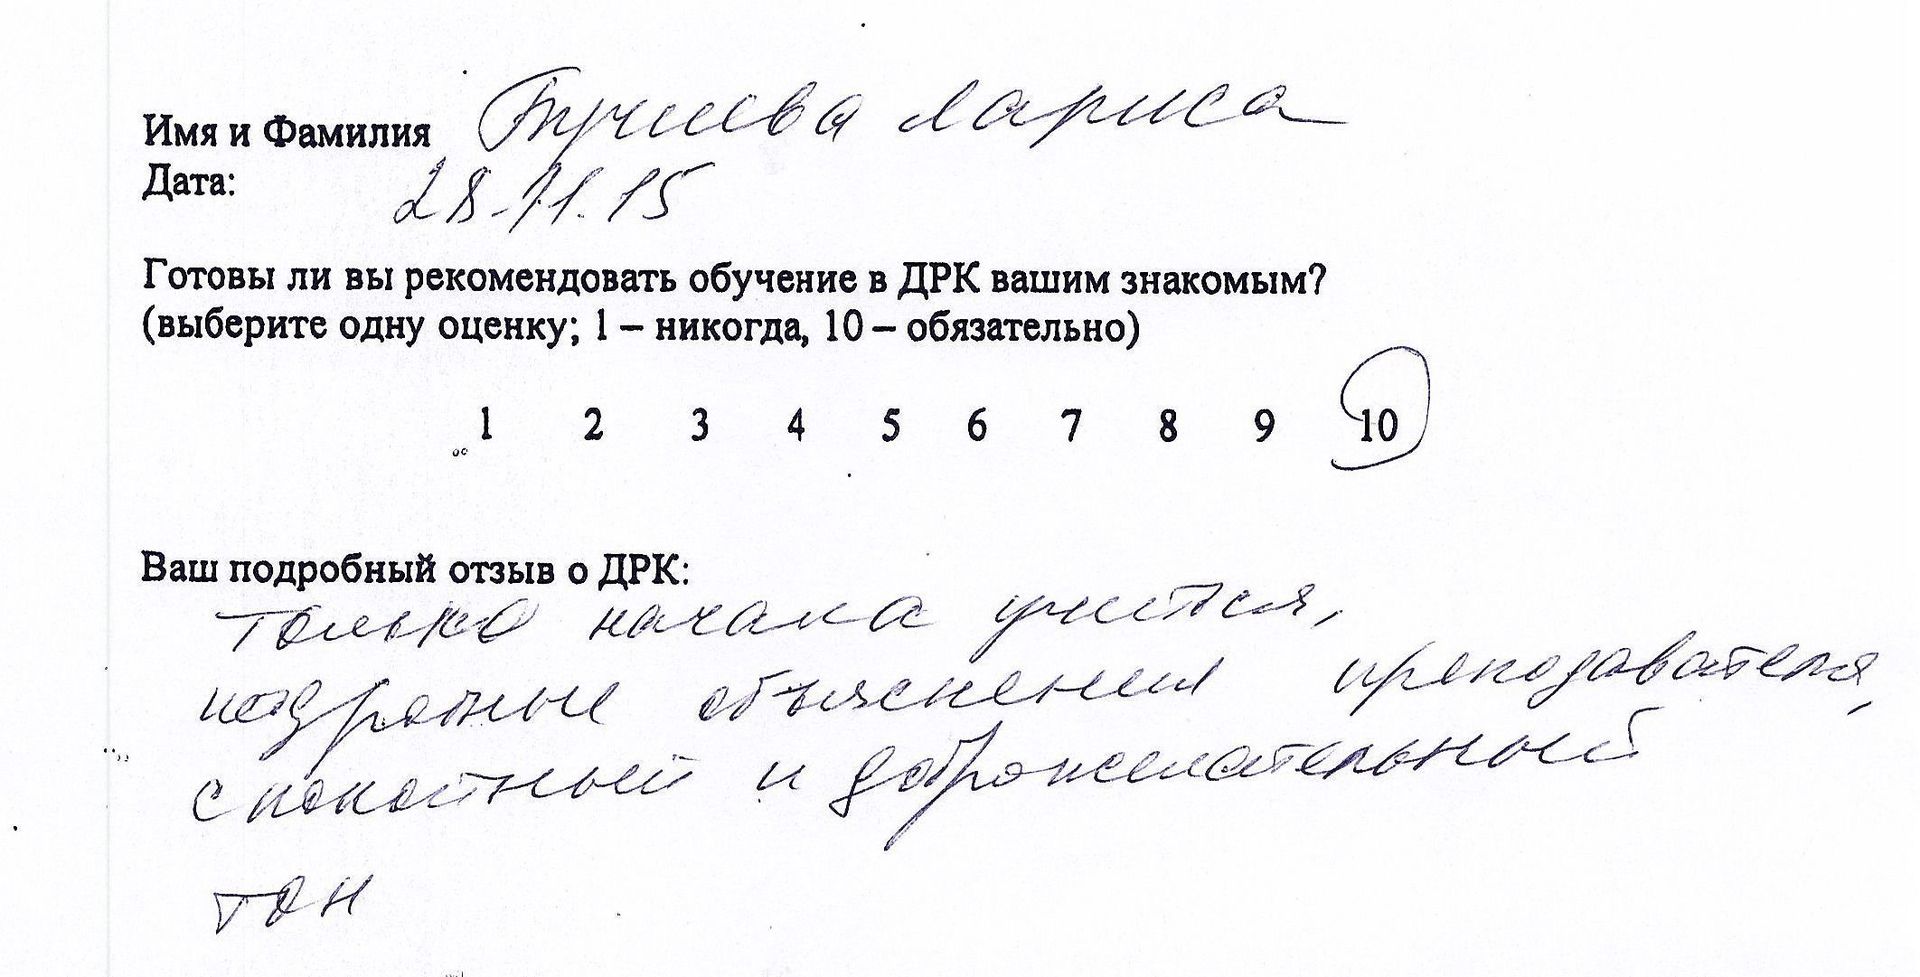 Имя и Фамилия Лариса
Дата: 28.11.15
Готовы ли вы рекомендовать обучение в ДРК вашим знакомым?
(выберите одну оценку; 1 – никогда, 10 – обязательно)
1 2 3 4 5 6 7 8 9 10
Ваш подробный отзыв о ДРК:
только начала учиться,
подробные объяснения преподавателя,
спокойный и доброжелательный
тон